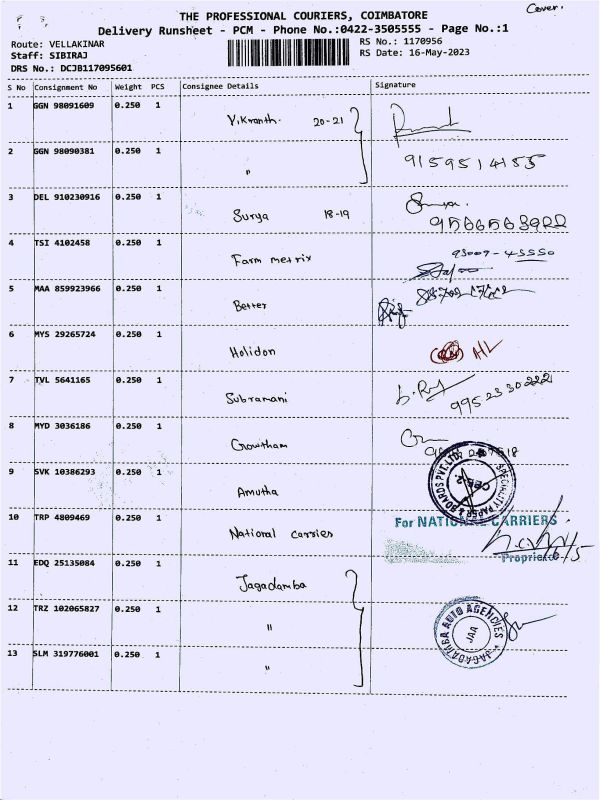 Cover.
THE PROFESSIONAL COURIERS, COIMBATORE
Delivery Runsheet - PCM - Phone No.:0422-3505555 - Page No.:1
Route: VELLAKINAR
RS No.: 1170956
Staff: SIBIRAJ
RS Date: 16-May-2023
DRS No.: DCJB117095601
S No Consignment No Weight PCS Consignee Details Signature
1 GGN 98091609 0.250 1 Vikranth. 20-21
2 GGN 98090381 0.250 1 " 9159514155
3 DEL 910230916 0.250 1 Surya 18-19
4 TSI 4102458 0.250 1 Farm metrix 93009-43550
5 MAA 859923966 0.250 1 Better
6 MYS 29265724 0.250 1 Holidon
7 TVL 5641165 0.250 1 Subramani 9952330222
8 MYD 3036186 0.250 1 Gowtham
9 SVK 10386293 0.250 1 Amutha SPECIALITY PAPER & BOARDS PVT. LTD. CBE-2
10 TRP 4809469 0.250 1 National carries For NATIONAL CARRIERS
Proprietor
11 EDQ 25135084 0.250 1 Jagadamba
12 TRZ 102065827 0.250 1 " JAGADAMBA AUTO AGENCIES JAA
13 SLM 319776001 0.250 1 "